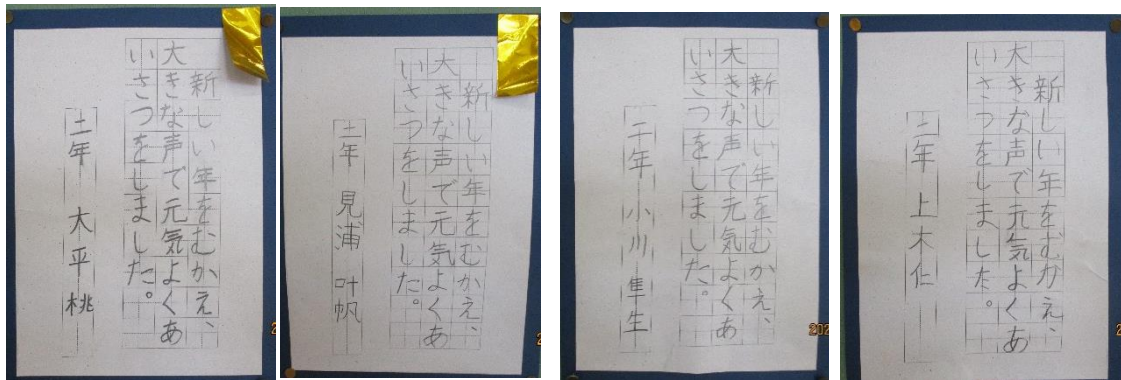 新しい年をむかえ、
大きな声で元気よくあ
いさつをしました。
二年 大平桃
新しい年をむかえ、
大きな声で元気よくあ
いさつをしました。
二年 見浦 叶帆
新しい年をむかえ、
大きな声で元気よくあ
いさつをしました。
二年 小川 隼生
202
新しい年をむかえ、
大きな声で元気よくあ
いさつをしました。
二年 上木仁